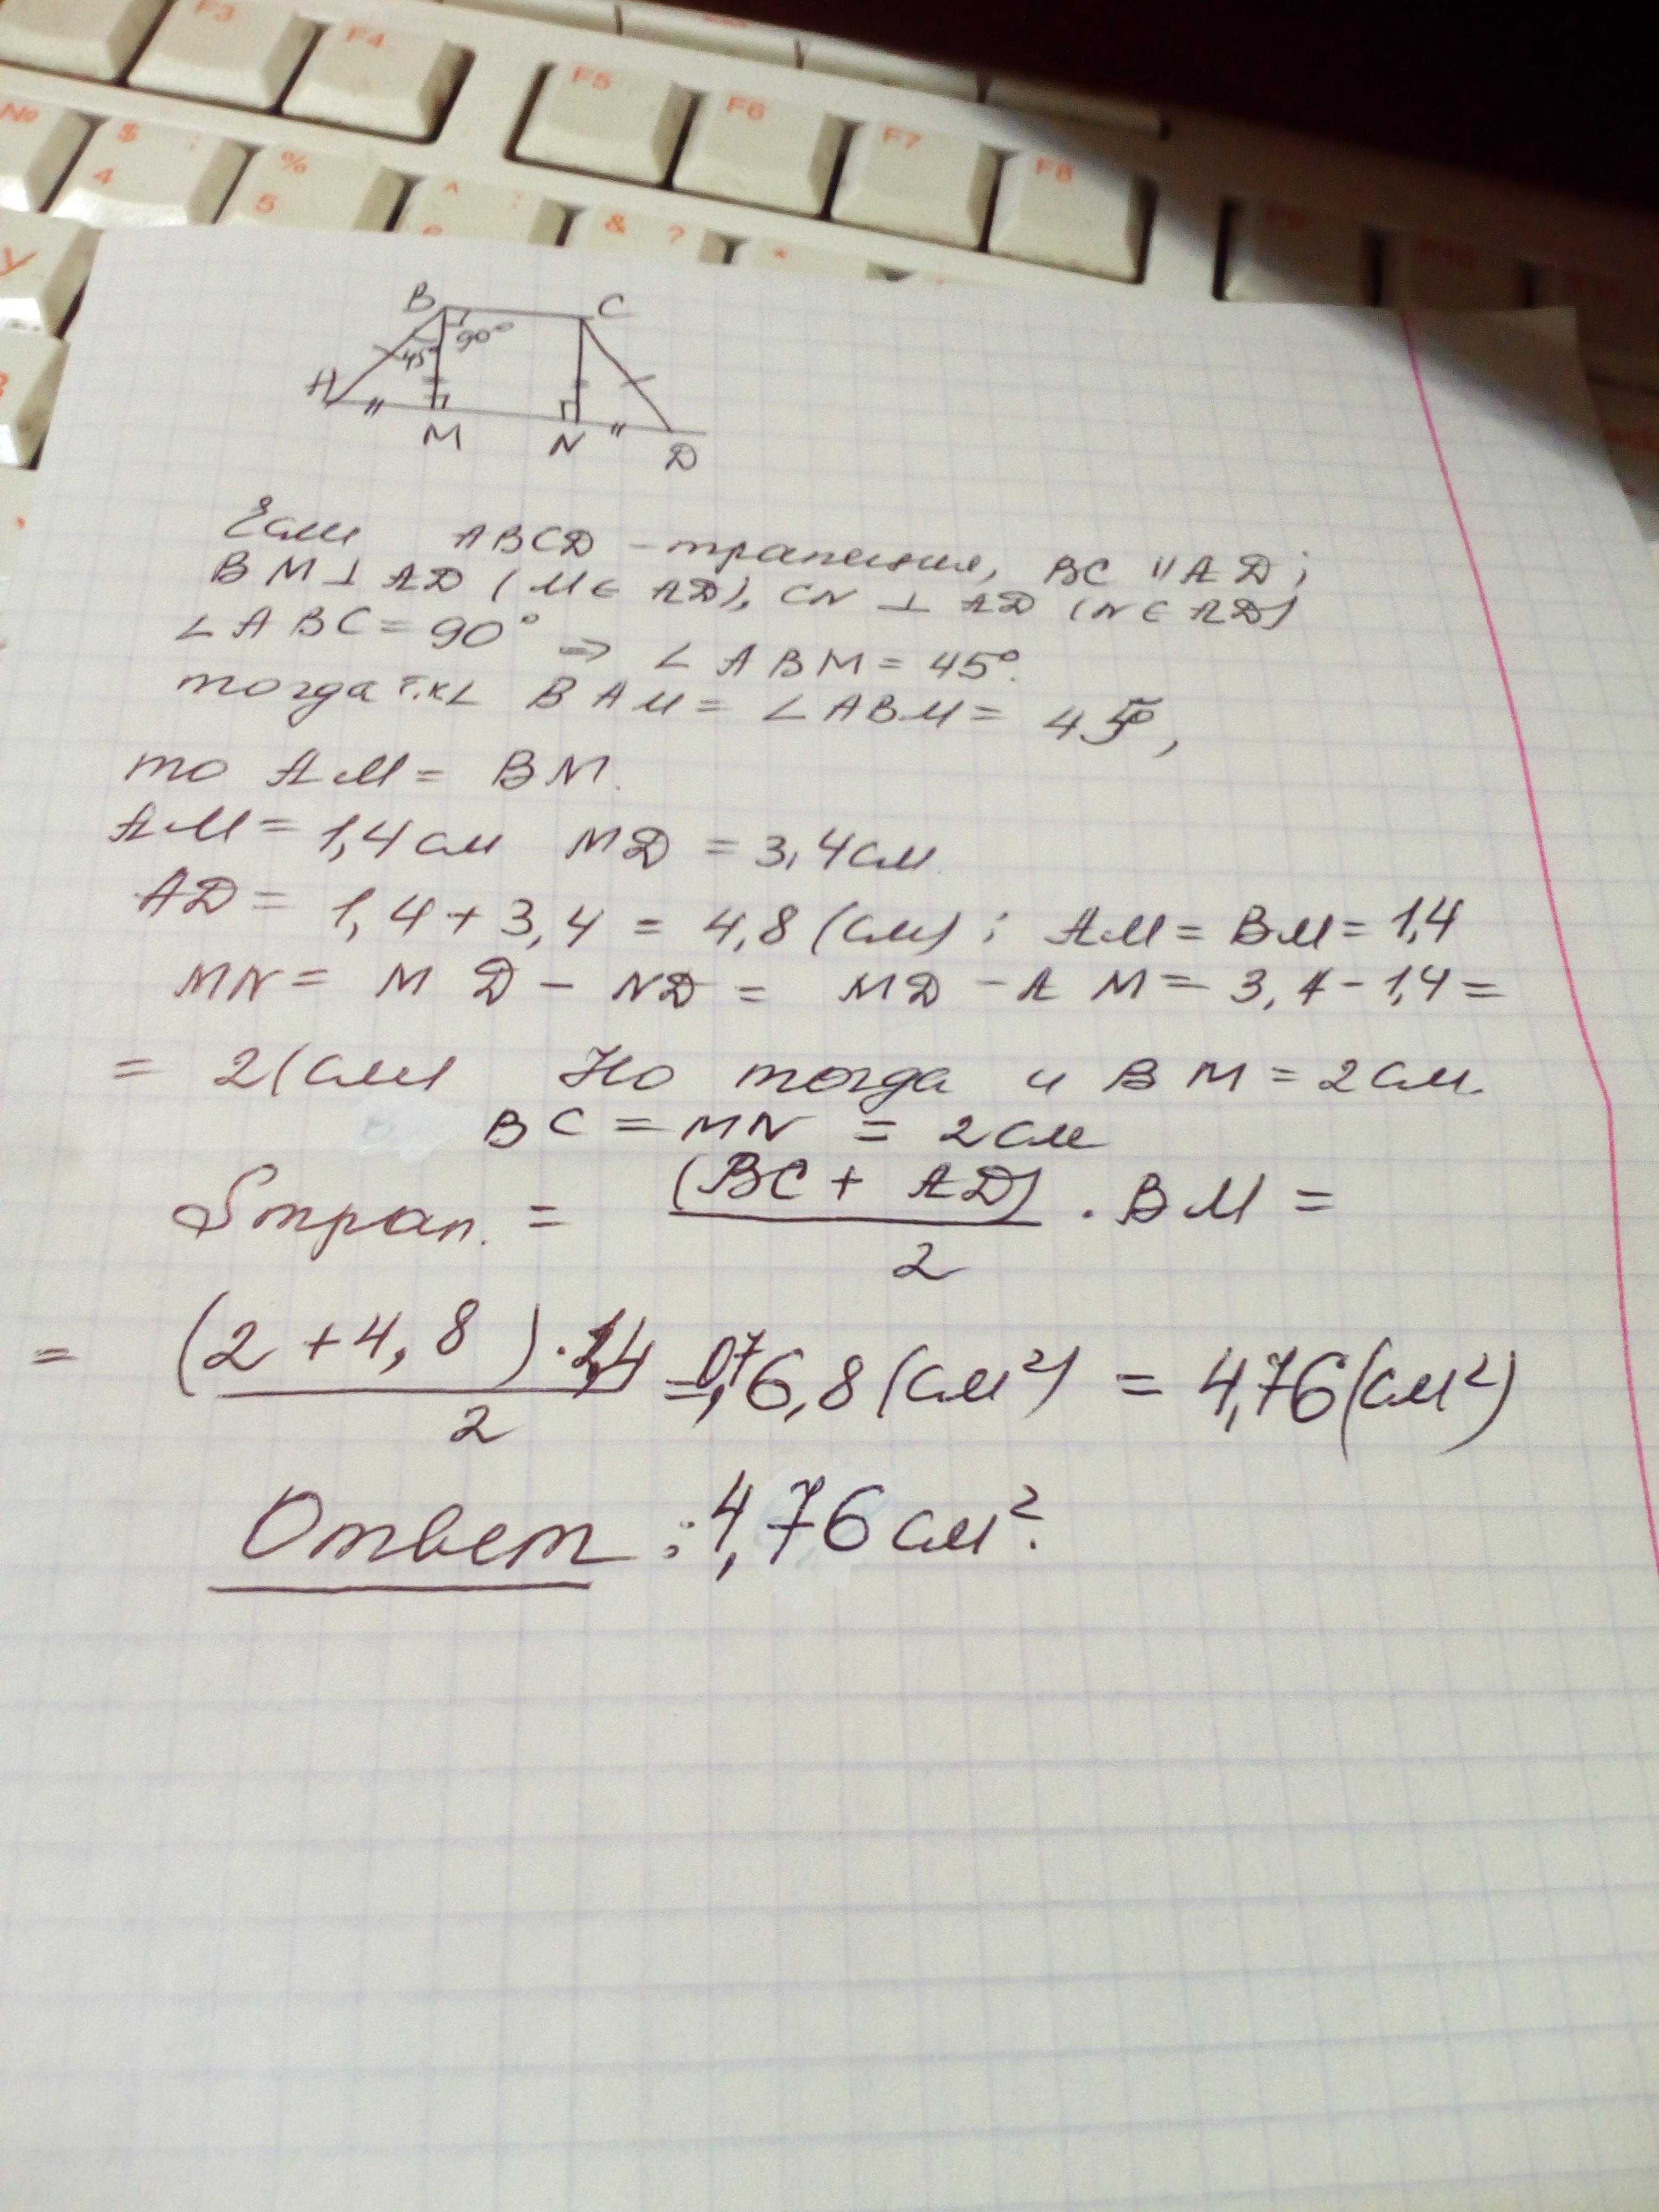 F3
F4
F5
F6
F7
F8
№
$ ;
4
%
5
^ :
& ?
*
B
C
90°
45°
A
M
N
D
Если ABCD – трапеция, BC || AD;
BM ⊥ AD (M ∈ AD), CN ⊥ AD (N ∈ AD)
∠ABC = 90° ⇒ ∠ABM = 45°.
тогда т.к ∠BAM = ∠ABM = 45°,
то AM = BM.
AM = 1,4 см MD = 3,4 см
AD = 1,4 + 3,4 = 4,8 (см); AM = BM = 1,4
MN = MD – ND = MD – AM = 3,4 – 1,4 =
= 2 (см) Но тогда и BM = 2 см.
BC = MN = 2 см
Sтрап. = (BC + AD) / 2 · BM =
= (2 + 4,8) · 1,4 / 2 = 0,7 · 6,8 (см²) = 4,76 (см²)
Ответ : 4,76 см².